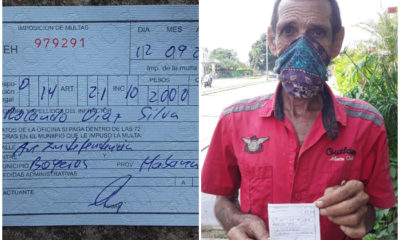 IMPOSICION DE MULTAS
DIA MES
EH 979291
12 09
Imp. de la multa
PESOS
D 14 ART 21 INC 10 2000
Rolando Díaz Silva
DATOS DE LA OFICINA SI PAGA DENTRO DE LAS 72
HORAS EN EL MUNICIPIO QUE LE IMPUSO LA MULTA
Independencia
MUNICIPIO Boyeros PROV
MEDIDAS ADMINISTRATIVAS
A
ACTUANTE